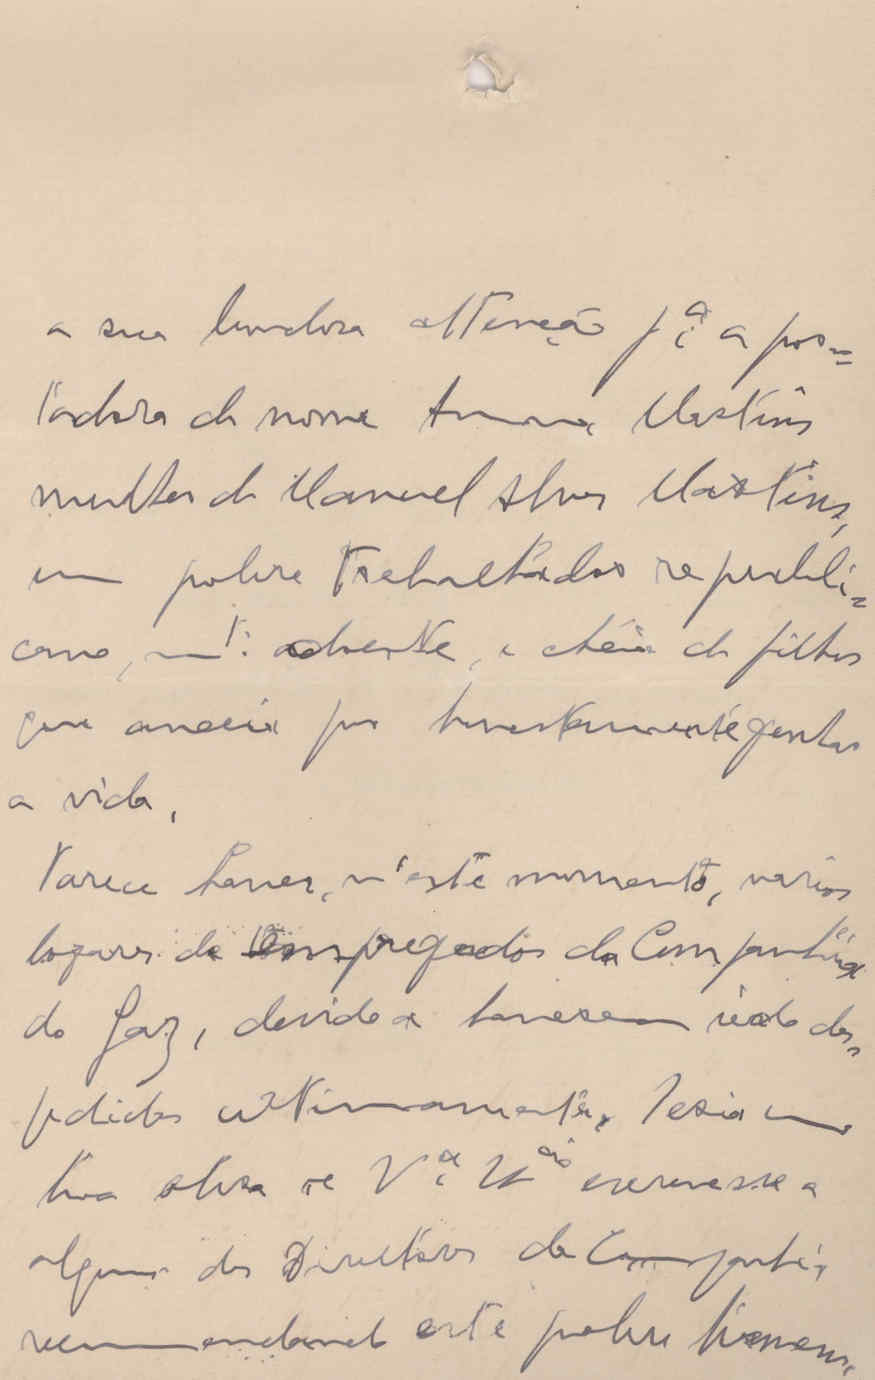 a sua bondosa attenção p.ª a por=
tadora de nome Anna Martins
mulher de Manuel Alves Martins,
um pobre trabalhador republi=
cano, m.t: doente, e cheio de filhos
que anceia por honestamente ganhar
a vida.
Parece haver, n'este momento, varios
logares de empregados da Companhia
do Gaz, devido a haverem sido des=
pedidos ultimamente. Seria uma
boa obra se V.ª escrevesse a
algum dos Directores da Companhia
recommendando este pobre homem.